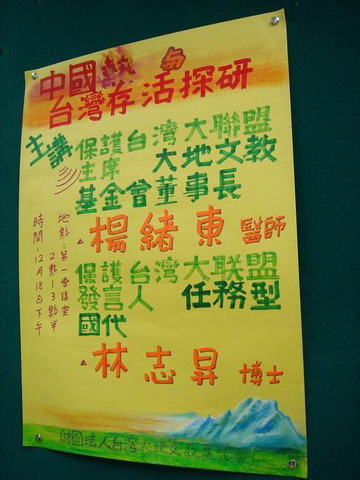 中國 勿
台灣存活探研
主講
保護台灣大聯盟
主席 大地文教
基金曾董事長
楊緒東 醫師
保護台灣大联盟
發言人 任務型
國代
林志昇 博士
地點:第一會議室
2點~3點半
時間:12月18日下午
財團法人台灣大地文教基金會